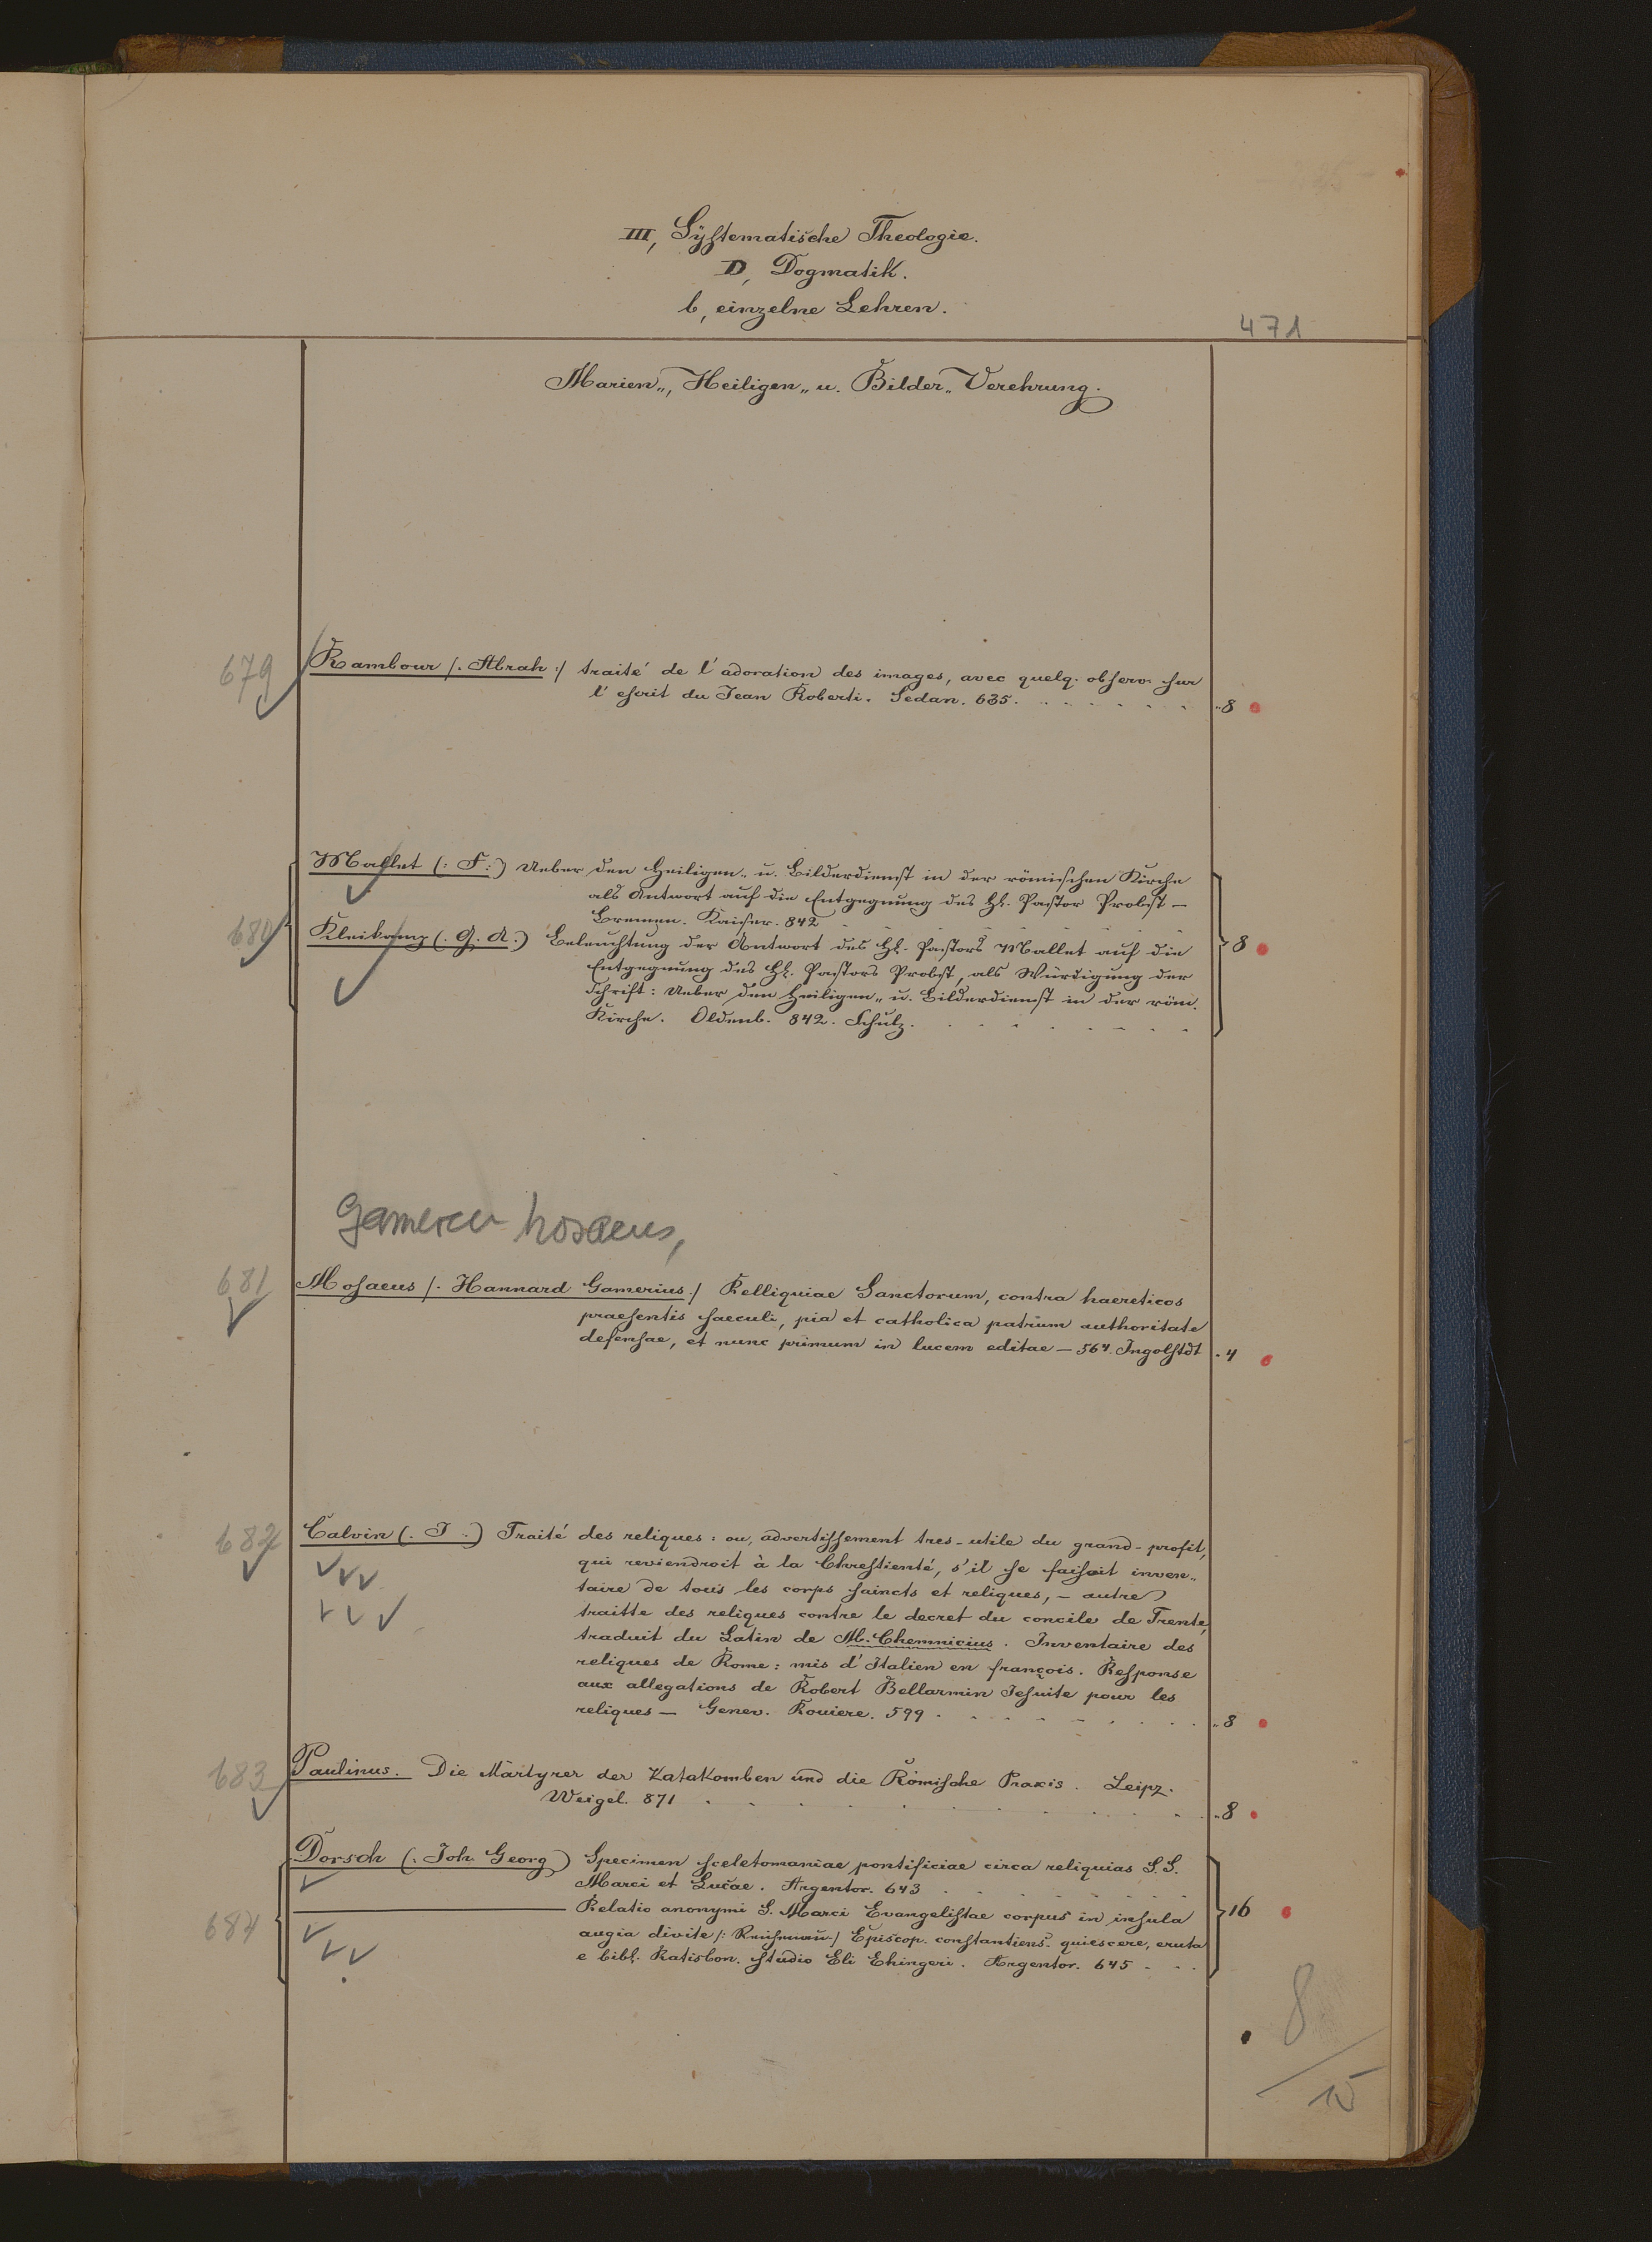 III, Systematische Theologie.
D, Dogmatik.
b, einzelne Lehren.
471
Marien-, Heiligen- u. Bilder-Verehrung.
679 Rambour /: Abrah :/ traité de l'adoration des images, avec quelq. observ. sur
l'escrit du Jean Roberti. Sedan. 635. 8
Mallet (: F :) Ueber den Heiligen- u. Bilderdienst in der römischen Kirche
als Antwort auf die Entgegnung des H. Pastor Probst –
Bremen. Kaiser. 842
680 Kleikamp (: G. A :) Beleuchtung der Antwort des H. Pastors Mallet auf die 8
Entgegnung des H. Pastors Probst, als Würdigung der
Schrift: Ueber den Heiligen- u. Bilderdienst in der röm.
Kirche. Oldenb. 842. Schulz.
681 Mosaeus /: Hannard Gamerius :/ Relliquiae Sanctorum, contra haereticos
praesentis saeculi, pia et catholica patrum authoritate
defensae, et nunc primum in lucem editae – 564. Ingolstdt 4
682 Calvin (: J :) Traité des reliques: ou, advertissement tres-utile du grand-profit,
qui reviendroit à la Chrestienté, s'il se faisoit inven-
taire de tous les corps saincts et reliques, – autre
traitte des reliques contre le decret du concile de Trente,
traduit du Latin de M. Chemnicius. Inventaire des
reliques de Rome: mis d'Italien en françois. Response
aux allegations de Robert Bellarmin Jesuite pour les
reliques – Genev. Rouiere. 599 8
683 Paulinus. Die Märtyrer der Katakomben und die Römische Praxis. Leipz.
Weigel. 871 8
Dorsch (: Joh. Georg) Specimen sceletomaniae pontificiae circa reliquias S. S.
Marci et Lucae. Argentor. 643
684 Relatio anonymi S. Marci Evangelistae corpus in insula 16
augia divite /: Reichenau :/ Episcop. constantiens. quiescere, eruta
e bibl. Ratisbon. studio Eli Ehingeri. Argentor. 645
8
15